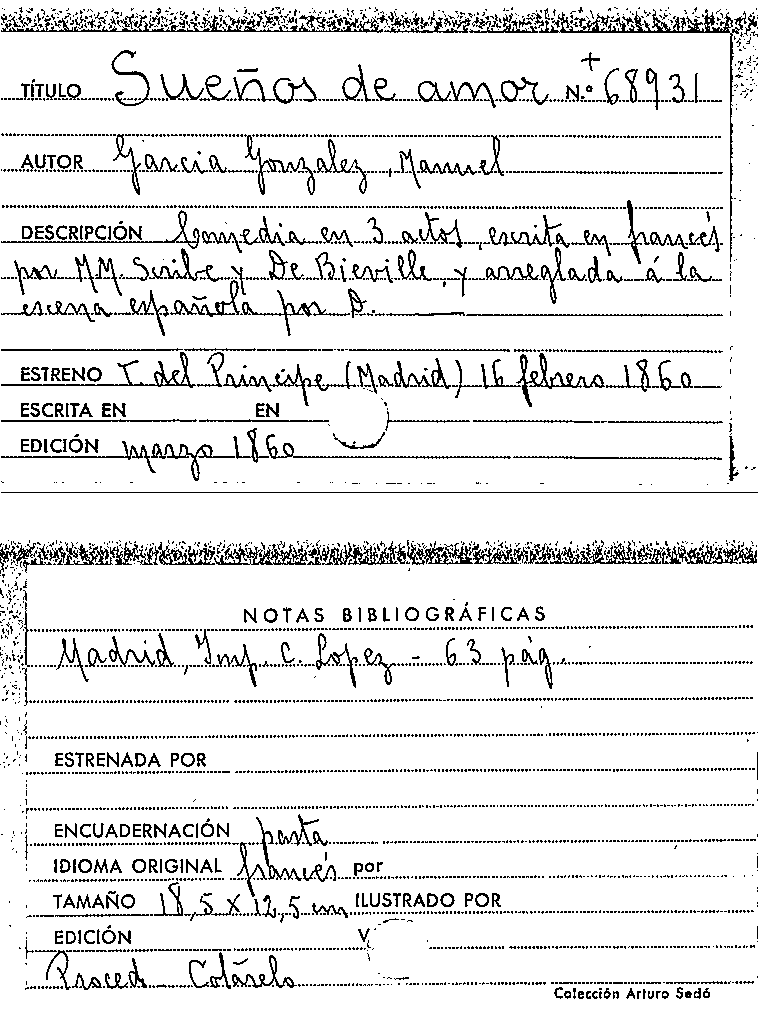 TÍTULO Sueños de amor N.º + 68931
AUTOR Garcia Gonzalez, Manuel
DESCRIPCIÓN Comedia en 3 actos, escrita en francés
por MM. Scribe y De Bieville, y arreglada á la
escena española por D.
ESTRENO T. del Principe (Madrid) 16 febrero 1860
ESCRITA EN EN
EDICIÓN marzo 1860
NOTAS BIBLIOGRÁFICAS
Madrid, Imp. C. Lopez - 63 pág.
ESTRENADA POR
ENCUADERNACIÓN pasta
IDIOMA ORIGINAL francés por
TAMAÑO 18,5 x 12,5 cm ILUSTRADO POR
EDICIÓN V
Proced. Cotarelo
Colección Arturo Sedó